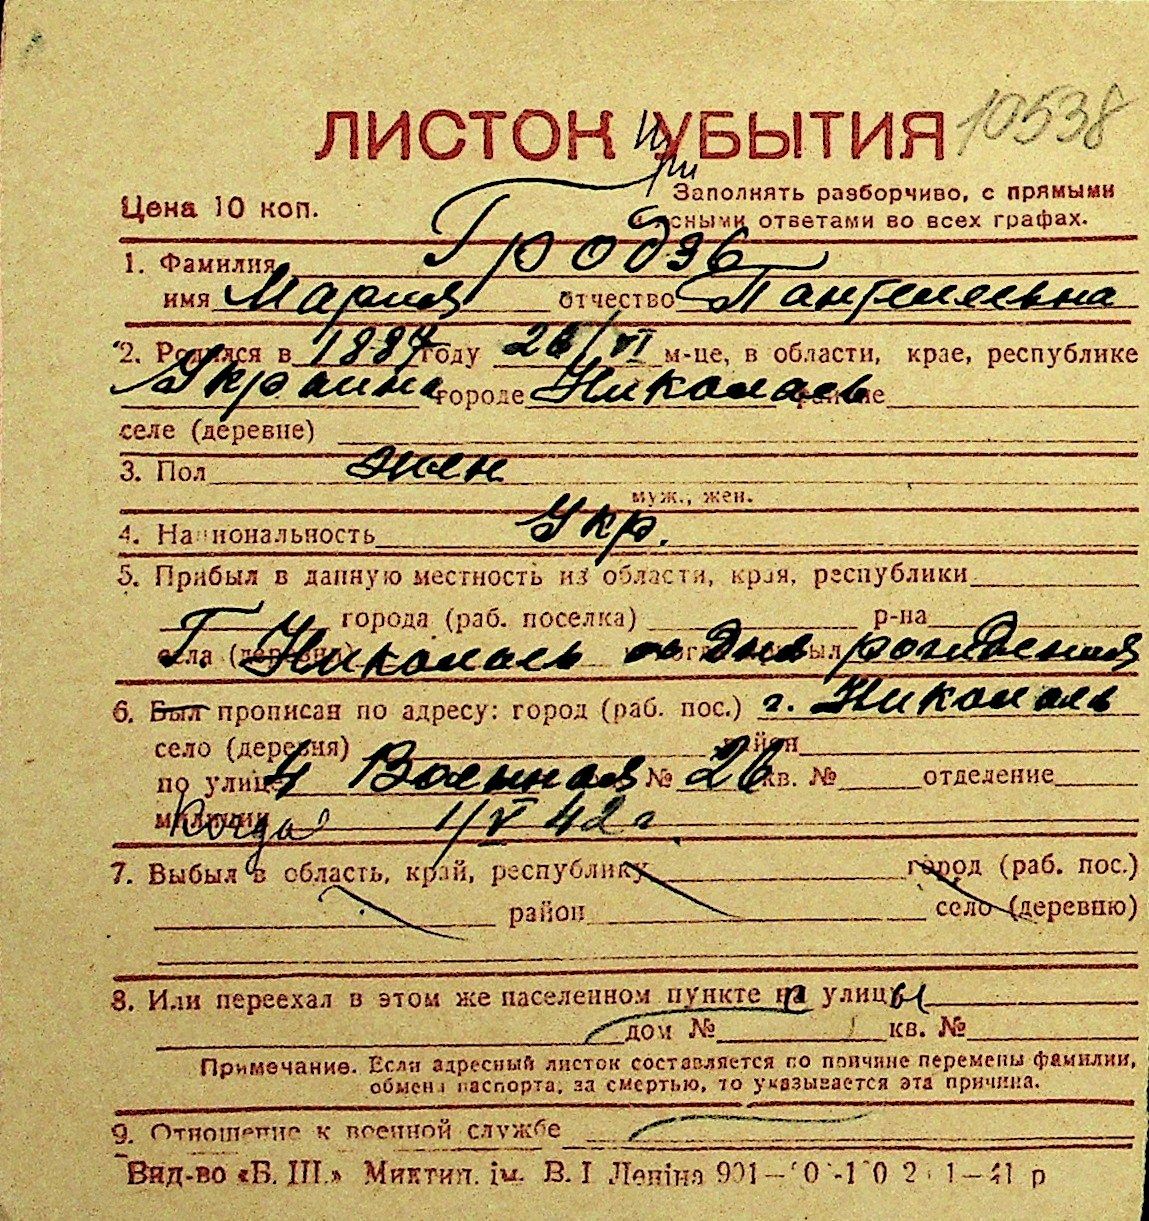 10538
ЛИСТОК УБЫТИЯ
при
Цена 10 коп.
Заполнять разборчиво, с прямыми
и ясными ответами во всех графах.
1. Фамилия Гродзь
имя Мария отчество Пантелеевна
2. Родился в 1887 году 26/VI м-це, в области, крае, республике
Украина городе Николаев районе
селе (деревне)
3. Пол жен
муж., жен.
4. Национальность Укр.
5. Прибыл в данную местность из области, края, республики
города (раб. поселка) р-на
села (деревни) Г. Николаев со дня рождения
6. Был прописан по адресу: город (раб. пос.) г. Николаев
село (деревня) район
по улице 4 Военная № 26 кв. № отделение
милиции Когда 1/V 42 г.
7. Выбыл в область, край, республику город (раб. пос.)
район село (деревню)
8. Или переехал в этом же населенном пункте с улицы
дом № кв. №
Примечание. Если адресный листок составляется по причине перемены фамилии,
обмена паспорта, за смертью, то указывается эта причина.
9. Отношение к военной службе
Вид-во «Б. Ш.» Миктип. ім. В. І Леніна